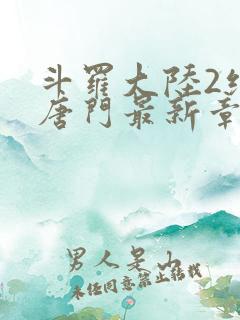 斗羅大陸2
唐門最新章
男人是山
未經同意禁止轉載